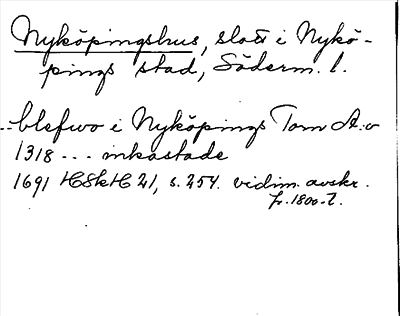 Nyköpingshus, slott i Nykö-
pings stad, Söderm. l.
..blefwo i Nyköpings Torn A:o
1318 ... inkastade
1691 HSkH 21, s. 254. vidim. avskr.
fr. 1800-t.